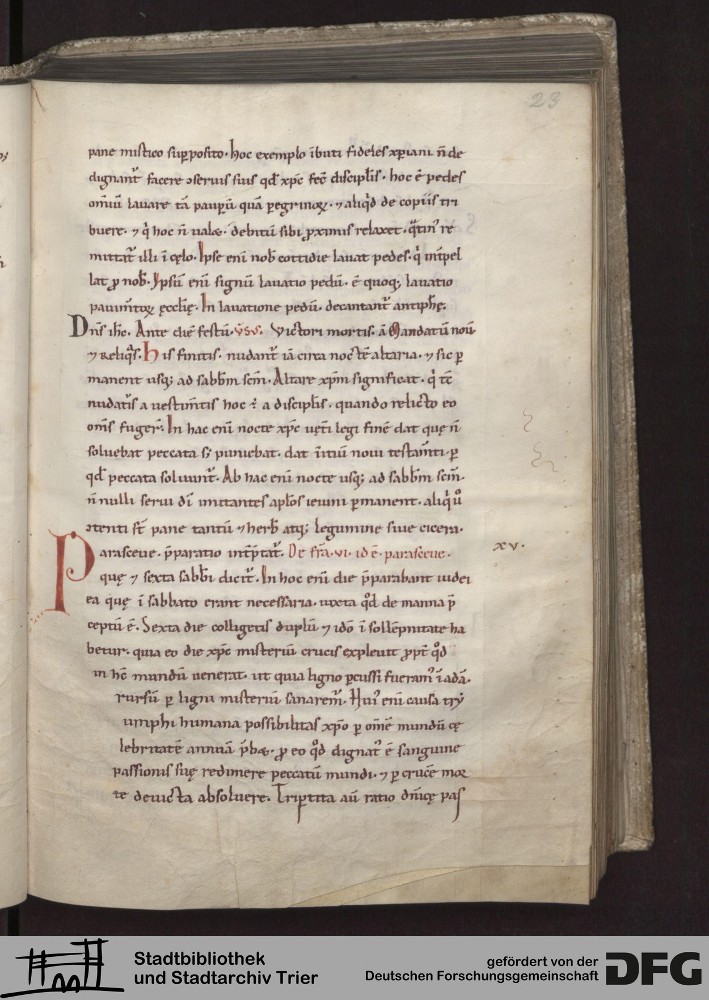 23
pane mistico supposito. hoc exemplo ībuti fideles xpiani n̄ de
dignant᷑ facere ↄseruis suis qd̄ xpc̄ fec̄ discipłis. hoc ē pedes
om̄iū lauare tā paupū quā ꝑegrinoꝝ. ⁊ aliqͥd de copiis tri
buere. ⁊ qͥ hoc n̄ ualꝫ. debitū sibi ꝓximus relaxet. re
mittat᷑ illi ī cęlo. Ipse enī nob̄ cottidie lauat pedes. qͥ int̄pel
lat ꝓ nob̄. Ipsū enī signū lauatio pedū. ē quoqꝫ lauatio
pauim̄toꝝ ęcclię. In lauatione pedū. decantant᷑ antiphę.
Dn̄s ih̄c. Ante diē festū. Victori mortis. ā Mandatū nouū
⁊ reliqͥs. his finitis. nudant᷑ iā circa noctē altaria. ⁊ sic ꝑ
manent usqꝫ ad sabb̄m sc̄m. Altare xpm̄ significat. qͥ tc̄
nudatis a uestim̄tis hoc ē a discipłis. quando relicto eo
om̄s fuger̄. In hac enī nocte xpc̄ uet̄i legi finē dat quę n̄
soluebat peccata sꝫ puniebat. dat ītiū noui testam̄ti. ꝑ
qd̄ peccata soluunt᷑. Ab hac enī nocte usqꝫ ad sabb̄m sc̄m.
n̄nulli serui dī imitantes aplos ieiuni ꝑmanent. aliqͥ ů
ↄtenti st̄ pane tantū ⁊ herb̄ atqꝫ legumine siue cicera.
Parasceue. p̄paratio int̄p̄tat᷑. De fr̄a. vi. id ē parasceue.
xv.
quę ⁊ sexta sabb̄i dicit᷑. In hoc enī die p̄parabant iudei
ea quę ī sabbato erant necessaria. iuxta qd̄ de manna p̄
ceptū ē. Sexta die colligetis duplū ⁊ idō ī sollēpnitate ha
betur. quia eo die xpc̄ misteriū crucis expleuit ꝓpt̄ qd̄
in hc̄ mundū uenerat. ut quia ligno ꝑcussi fueram᷒ ī adā.
rursū ꝑ ligni misteriū sanarem᷒. Hui᷒ enī causa try
umphi humana possibilitas xpo ꝑ om̄e mundū cę
lebritatē annuā p̄bꝫ. ꝓ eo qd̄ dignat᷒ ē sanguine
passionis suę redimere peccatū mundi. ⁊ ꝑ crucē mor
te deuicta absoluere. Triꝑtita aū ratio dn̄icę pas
Stadtbibliothek
und Stadtarchiv Trier
gefördert von der
Deutschen Forschungsgemeinschaft
DFG